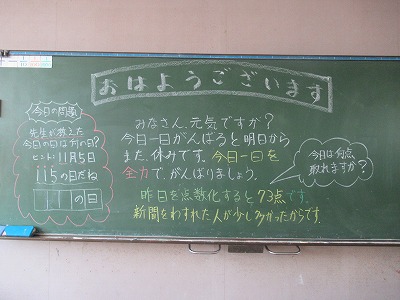 おはようございます
今日の問題
先生が教えた
今日の日は何の日?
ヒント:11月5日
115の日だね
の日
みなさん、元気ですか?
今日一日がんばると明日から
また、休みです。今日一日を
全力で、がんばりましょう。
昨日を点数化すると73点です。
新聞をわすれた人が少し多かったからです。
今日は何点
取れますか?